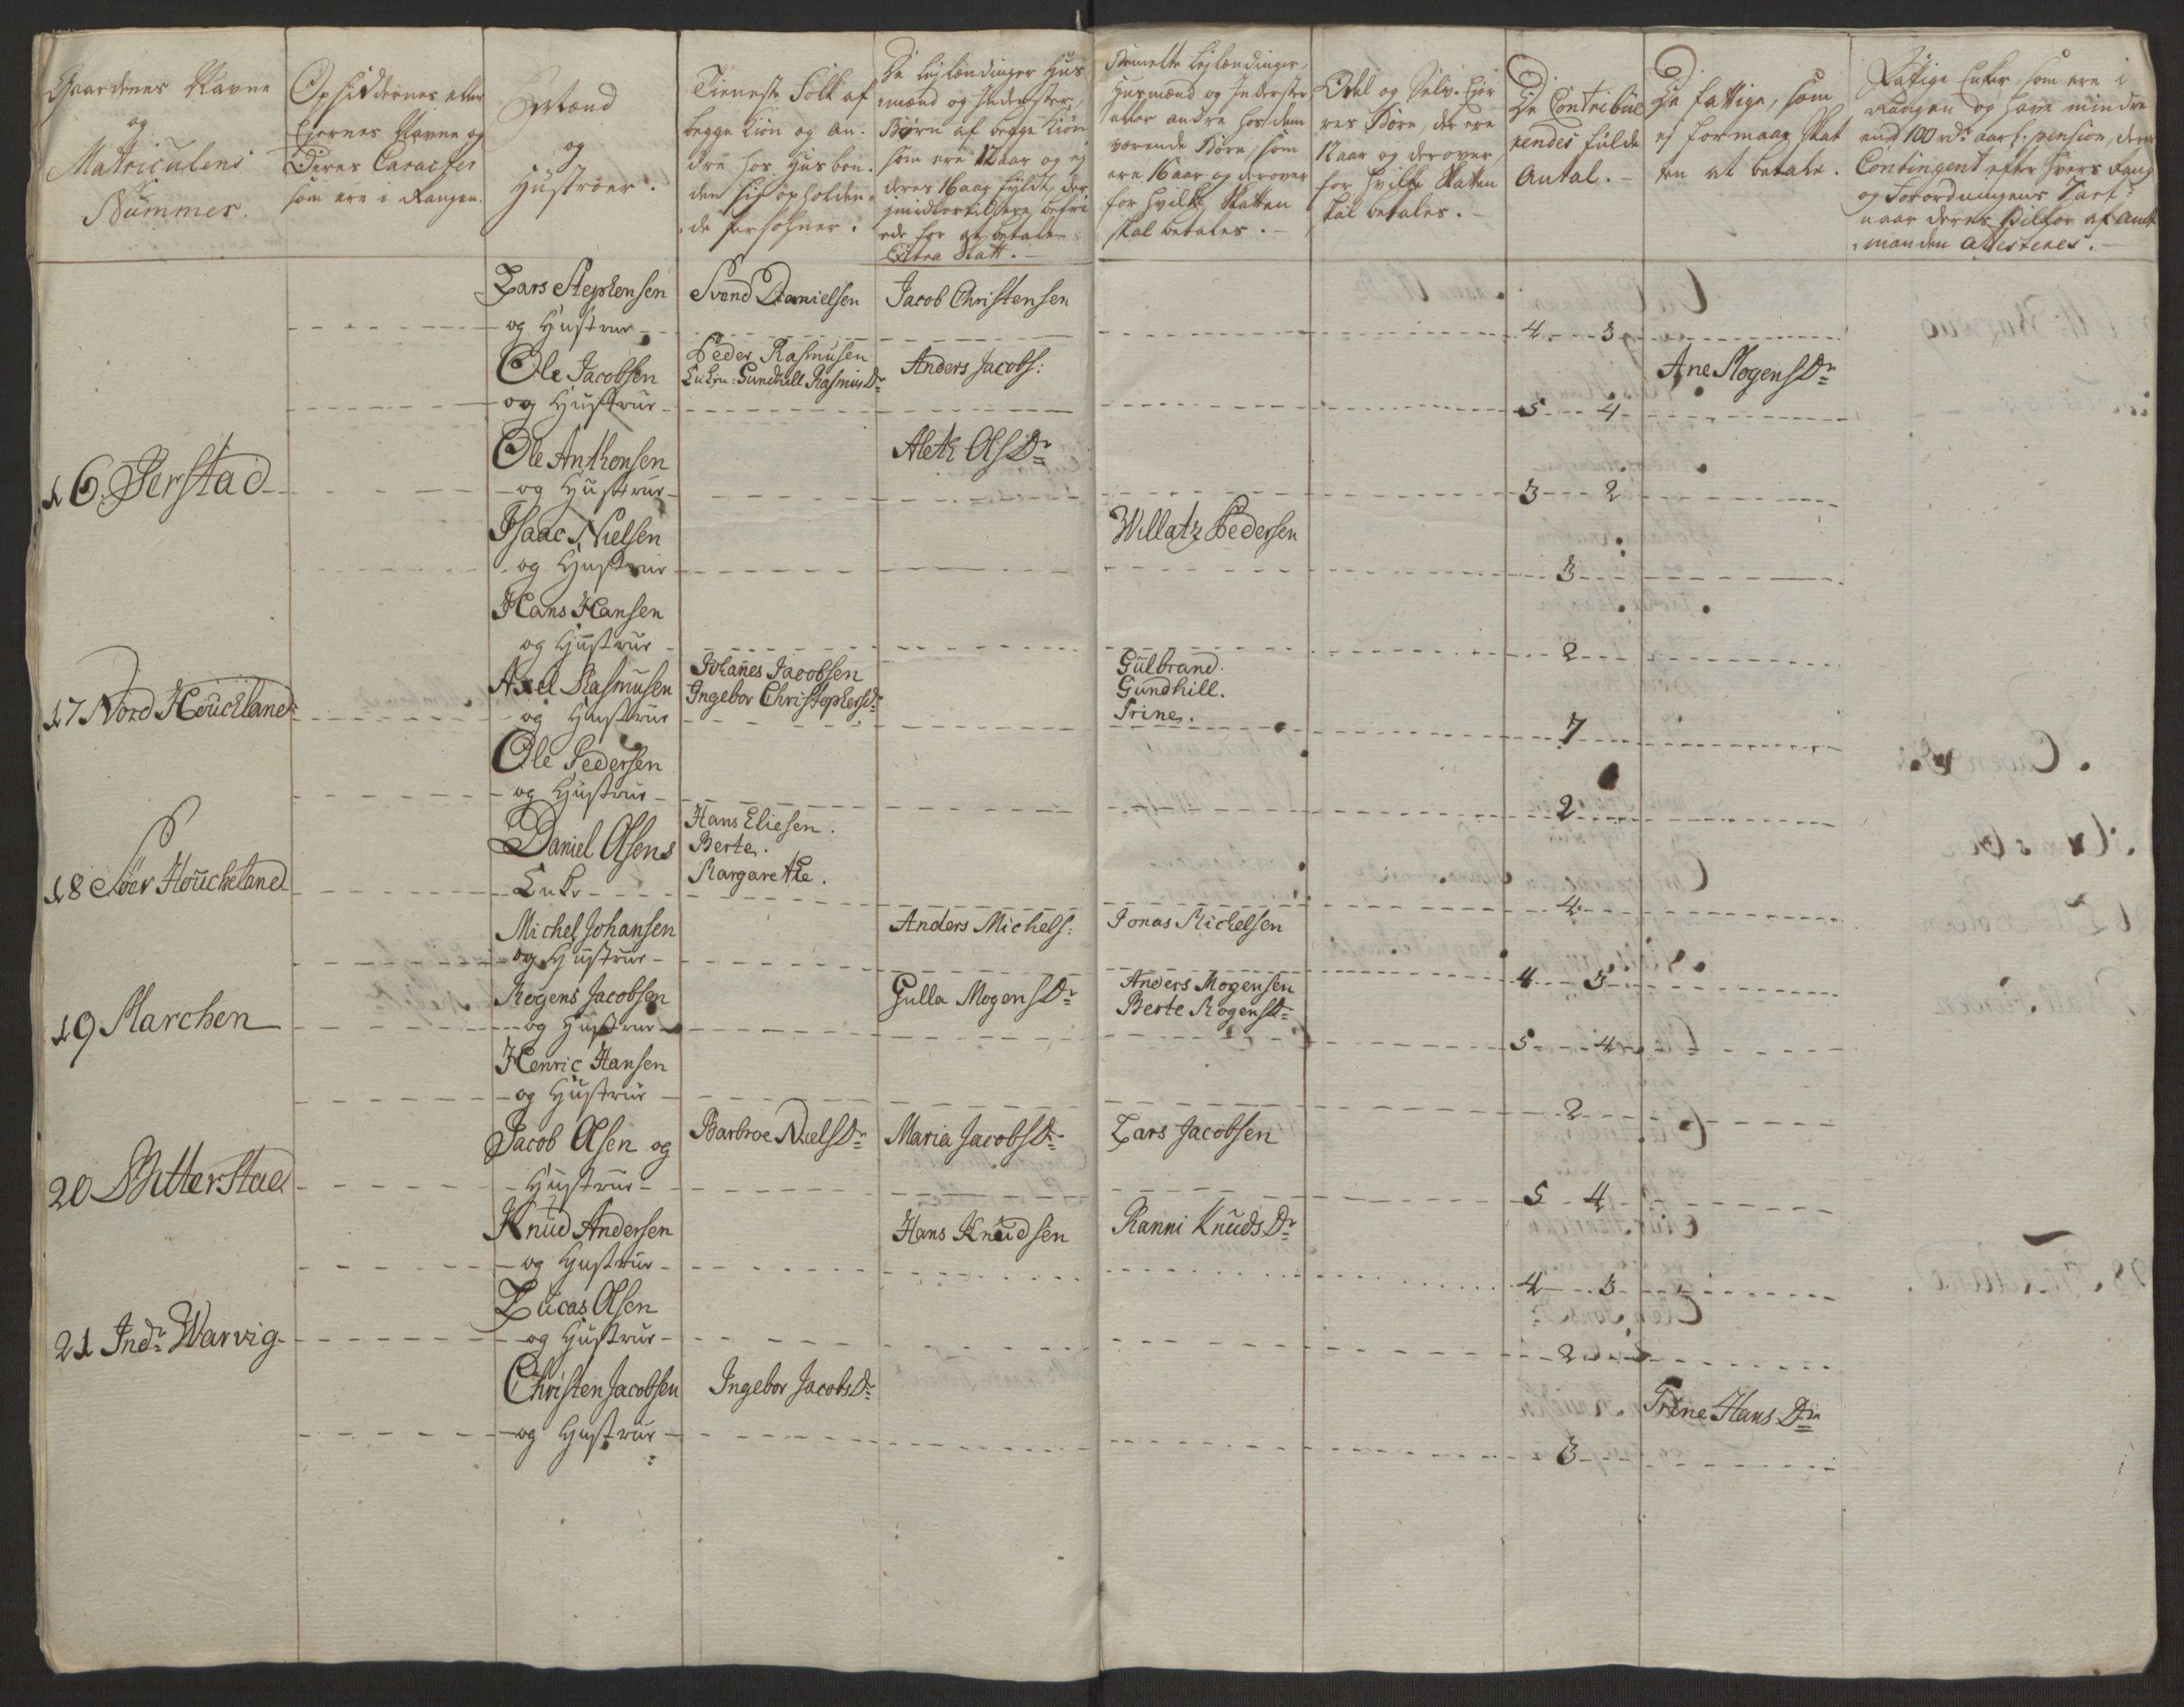 Gaardenes Navne
og
Matriculens
Nummer.
Opsiddernes eller
Ejernes Navne og
Deres Caracter
som ere i Rangen.
Mænd
og
Hustroer.
Tieneste Folk af
begge Kiön og an-
dre hos Husbon-
den sig opholden-
de Persohner.
De Lejlændinger Hus
mænd og Inderster,
Börn af begge Kiön
som ere 12 aar og ej
deres 16 aar fyldt, der
imidlertid ere befri
ede for at betale
Extra Skatt.
Bemelte Lejlændinger,
Husmænd og Inderster
eller andre hos dem
værende Börn, som
ere 16 aar og derover
for hvilke Skatten
skal betales.
Odel og Selv-Ejer
res Börn, der ere
12 aar og derover,
for hvilke Skatten
skal betales.
De Contribue
rendes fulde
Antal.
De fattige, som
ej formaar Skat
ten at betale.
Fattige Enker, som ere i
Rangen og have mindre
end 100 rd. aarl. pension, deres
Contingent efter hvers Rang
og Forordningens Tarif
naar deres Vilkor af Amt
manden attesteres.
Lars Stephensen Svend Danielsen Jacob Christensen
og Hustrue 4 3
Ole Jacobsen Peder Rasmusen Anders Jacobs: Ane MogensDr
Enken: Gundhill RasmusDr
og Hustrue 5 4
16 Jerstad Ole Anthonsen Aleth OlsDr
og Hustrue 3 2
Isaac Nielsen Willatz Pedersen
og Hustrue 3
Hans Hansen
og Hustrue 2
17 Nord Houcheland Axel Rasmusen Johanes Jacobsen Gulbrand.
Ingebor ChristophersDr Gundhill.
og Hustrue Trine. 7
Ole Pedersen
og Hustrue 2
18 Söer Houcheland Daniel Olsens Hans Eliesen.
Berte.
Enke Margarethe. 4
Michel Johansen Anders Michels: Jonas Michelsen
og Hustrue 4 3
19 Marchen Mogens Jacobsen Gulla MogensDr Anders Mogensen
Berte MogensDr
og Hustrue 5 4
Henric Hansen
og Hustrue 2
20 Schitterstad Jacob Olsen og Barbroe NielsDr Maria JacobsDr Lars Jacobsen
Hustrue 5 4
Knud Andersen Hans Knudsen Ranni KnudsDr
og Hustrue 4 3
21 Indr Warvig Lucas Olsen
og Hustrue 2
Christen Jacobsen Ingebor JacobsDr Trine HansDr
og Hustrue 3